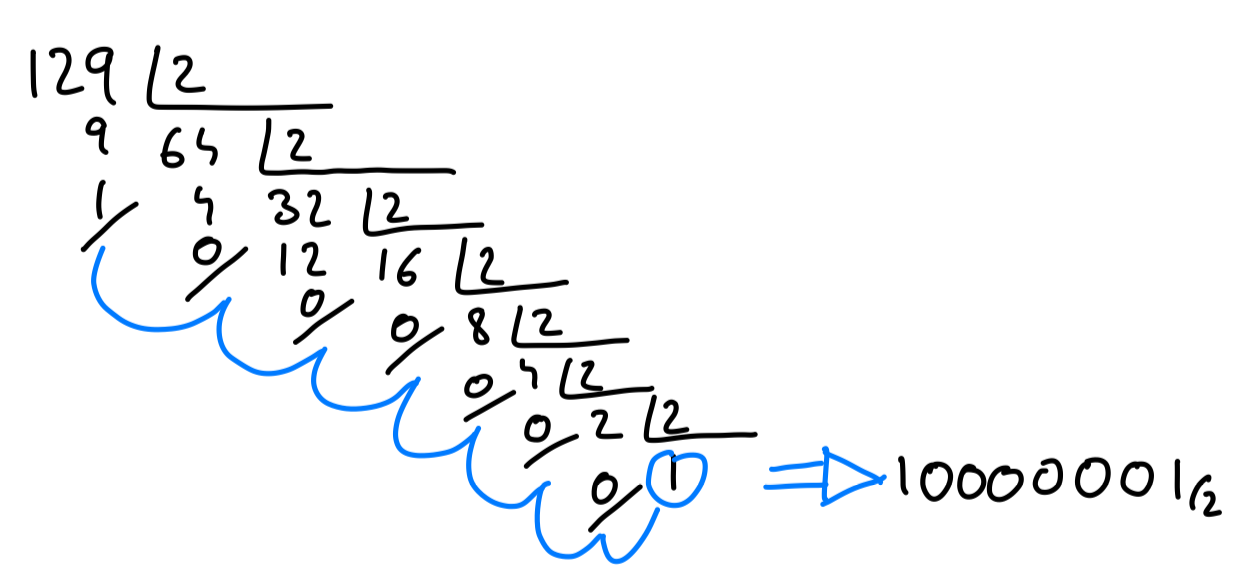 129 2
9 64 2
1 4 32 2
0 12 16 2
0 0 8 2
0 4 2
0 2 2
0 1 ⇒ 10000001/2